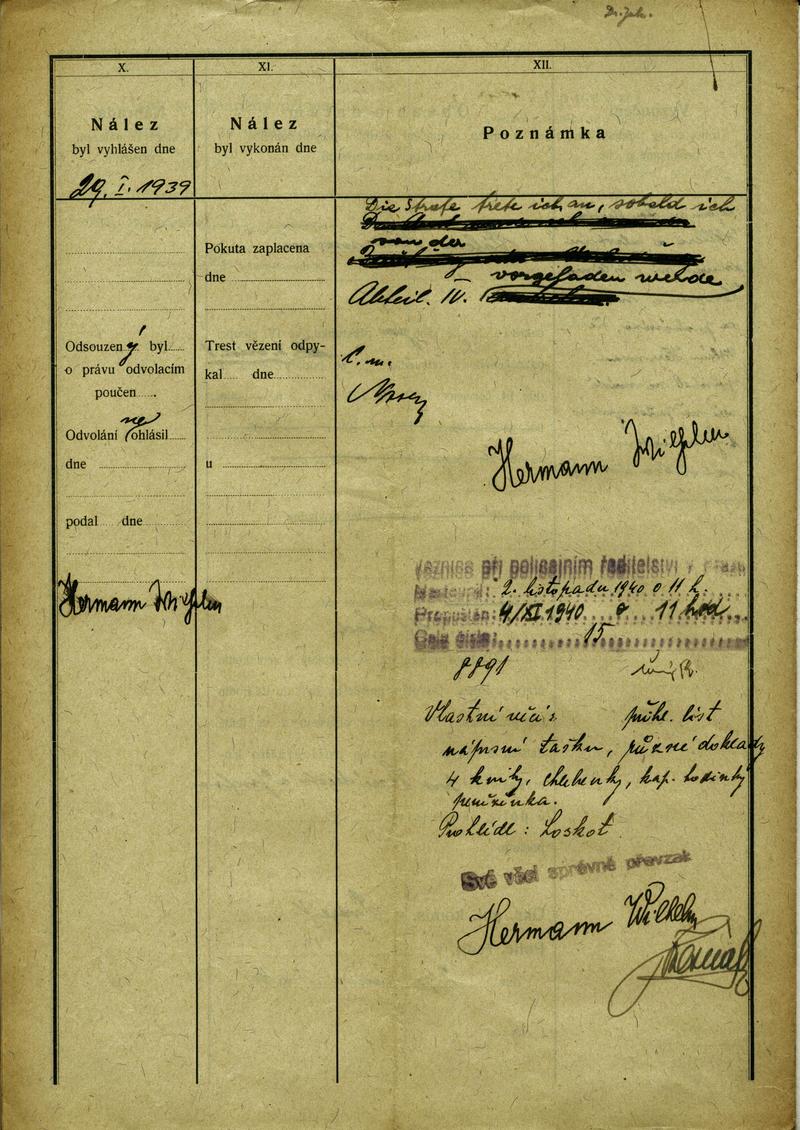 Dr. Joh.
X.
Nález
byl vyhlášen dne
29. I. 1939
Odsouzený byl
o právu odvolacím
poučen
Odvolání neohlásil
dne
podal dne
Hermann Wilhelm
XI.
Nález
byl vykonán dne
Pokuta zaplacena
dne
Trest vězení odpy-
kal dne
u
XII.
Poznámka
Die Strafe trete ich an, sobald ich
von der
vorgeladen werde
Abteil. IV.
Hermann Wilhelm
Věznice při policejním ředitelství v Praze
Nastoupil: 2. listopadu 1940 o 11 h.
Propuštěn: 4/XI 1940 o 11 hod.
Cela číslo: 15
8891
Vlastní věci: průk. list
náprsní tašku, různé doklady
4 knihy, chlebenky, kap. hodinky
peněženka.
Prohlédl: Loskot
Své věci správně převzal
Hermann Wilhelm